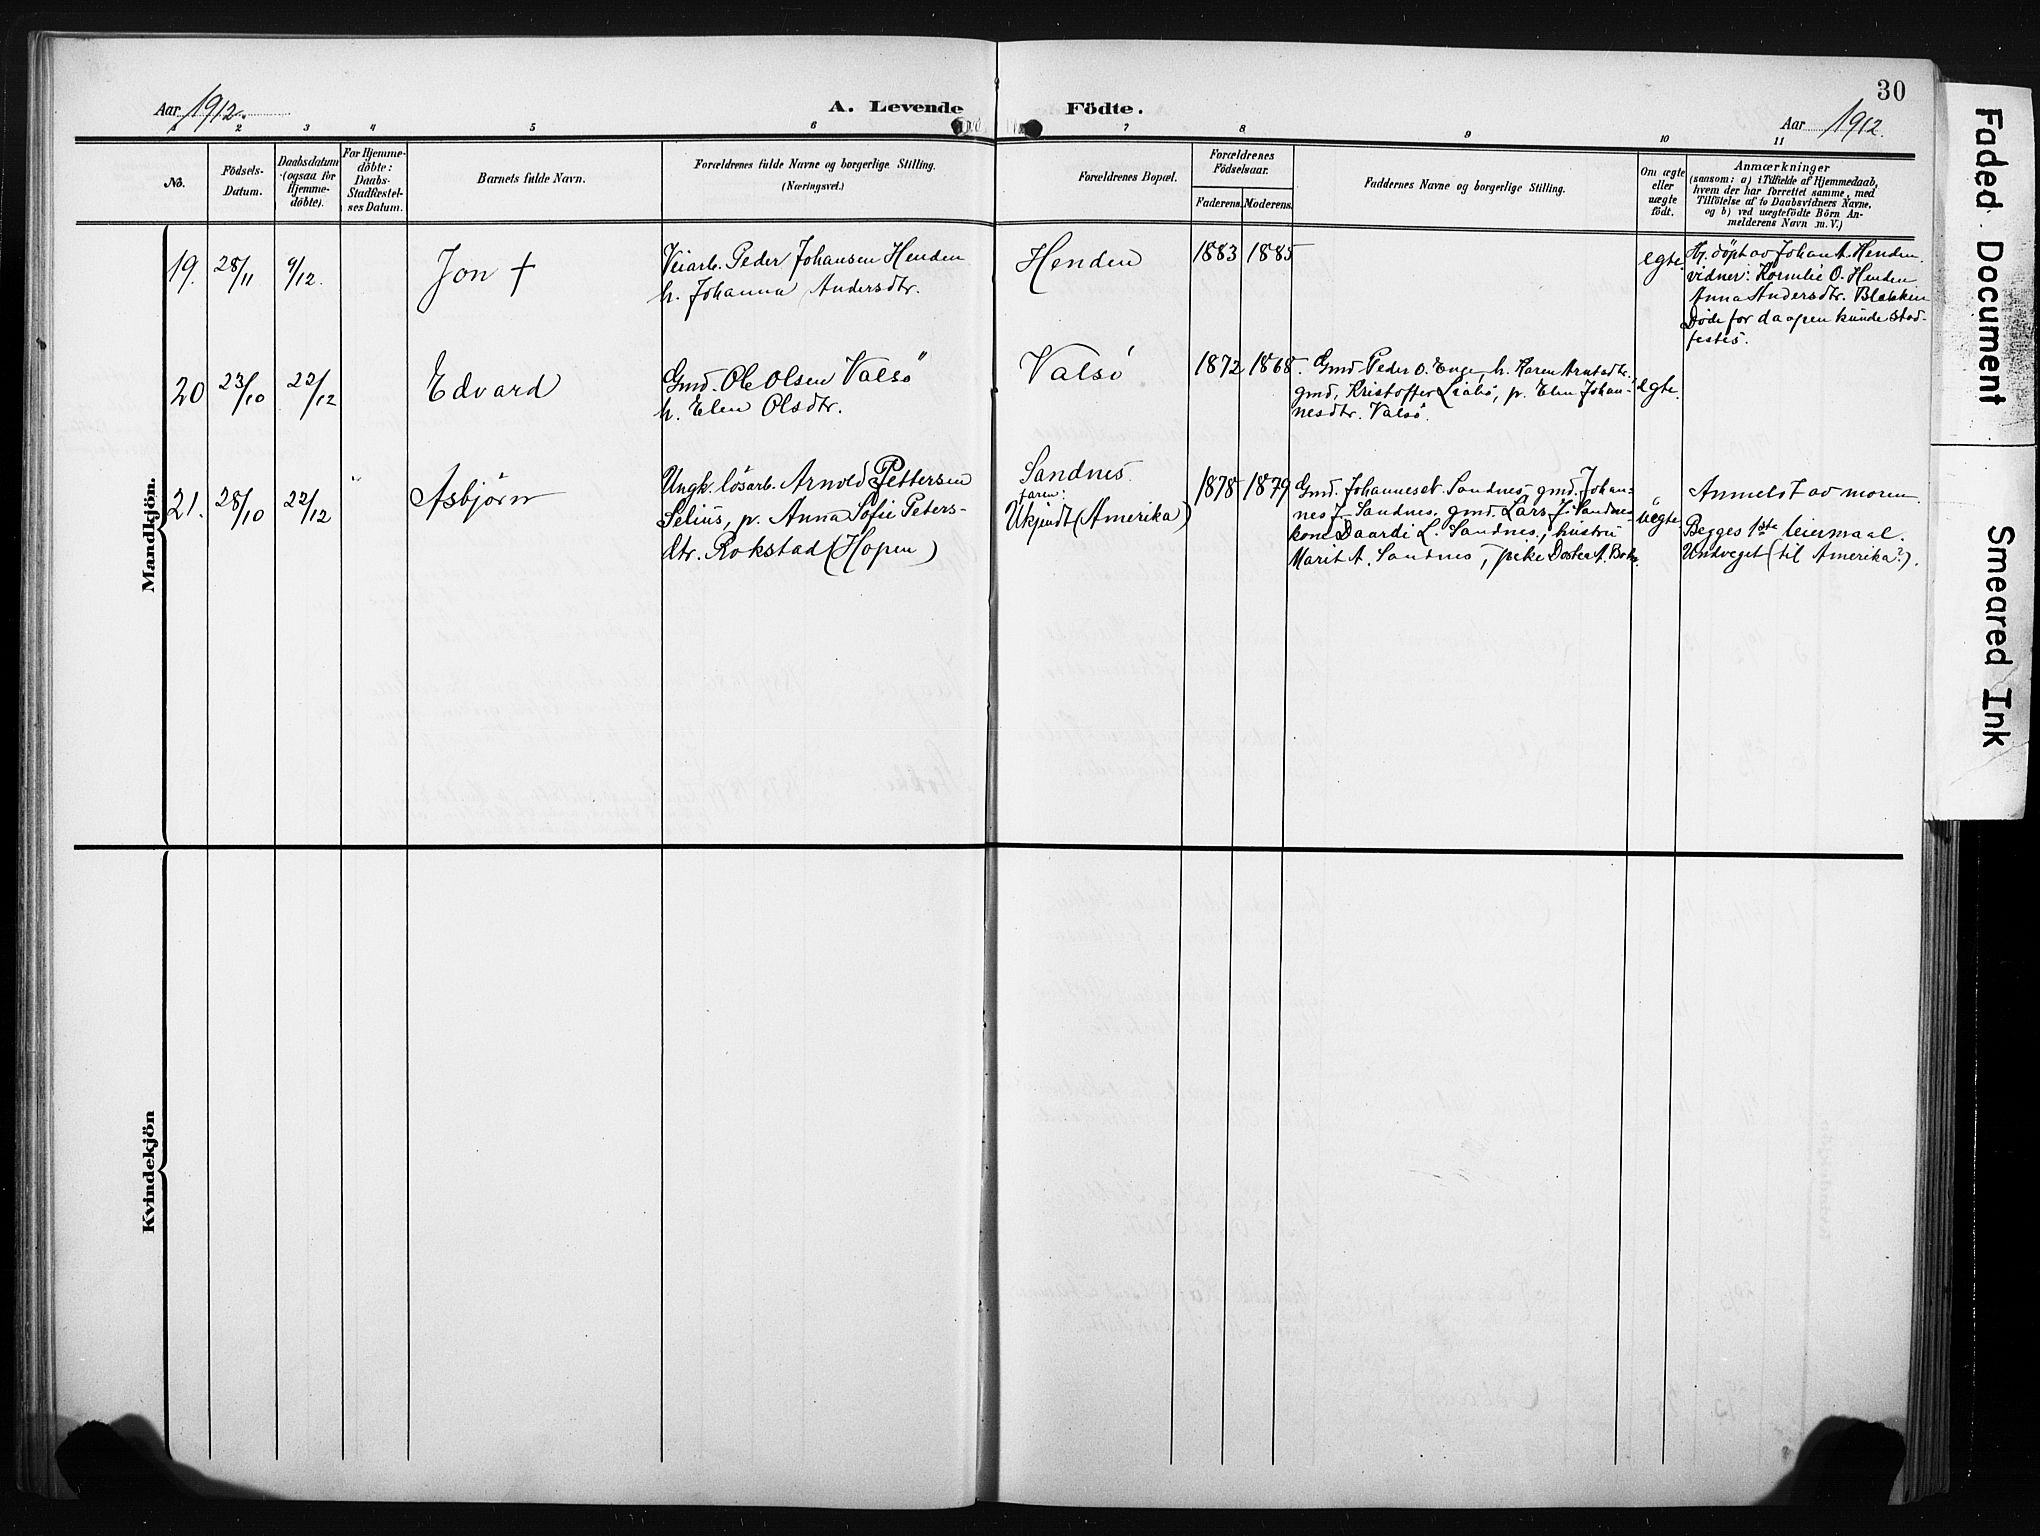 30
Aar 1912.
A. Levende Födte.
Aar 1912.
1 2 3 4 5 6 7 8 9 10 11
No.
Födsels-
Datum.
Daabsdatum
(ogsaa for
Hjemme-
döbte).
For Hjemme-
döbte:
Daabs-
Stadfæstel-
ses Datum.
Barnets fulde Navn.
Forældrenes fulde Navne og borgerlige Stilling.
(Næringsvei.)
Forældrenes Bopæl.
Forældrenes
Födselsaar.
Faderens.
Moderens.
Faddernes Navne og borgerlige Stilling.
Om ægte
eller
uægte
födt.
Anmærkninger
(saasom: a) i Tilfælde af Hjemmedaab,
hvem der har forrettet samme, med
Tilföielse af to Daabsvidners Navne,
og b) ved uægtefödte Börn An-
melderens Navn m. V.)
Mandkjön.
19. 28/11 9/12. Jon †
Veiarb. Peder Johansen Henden
h. Johanna Andersdtr.
Henden
1883 1885
egte
Hj. döpt av Johan A. Henden.
vidner: Kornelie O. Henden
Anna Andersdtr. Blekken
Döde før daapen kunde stad-
festes.
20 23/10 22/12 Edvard
Gmd. Ole Olsen Valsö
h. Elen Olsdtr.
Valsö
1872 1868.
Gmd. Peder O. Enge, h. Karen
gmd. Kristoffer Liabö, p. Elen Johan-
nesdtr. Valsö.
egte.
21. 28/10 22/12 " Asbjørn
Ungk. lösarb. Arnold Pettersen
Selius, p. Anna Sofie Peters-
dtr. Rokstad (Hopen)
Sandnes
faren:
Ukjendt (Amerika)
1878 1879
Gmd. Johannes Sandnes, gmd. Johan-
nes J. Sandnes, gmd. Lars J. Sandnes
kone Daardi L. Sandnes, hustru
Marit A. Sandnes, pike Dortea A.
uegte
Anmeldt av moren.
Begges 1ste leiermaal.
Undveget (til Amerika?).
Kvindekjön
Faded Document
Smeared Ink